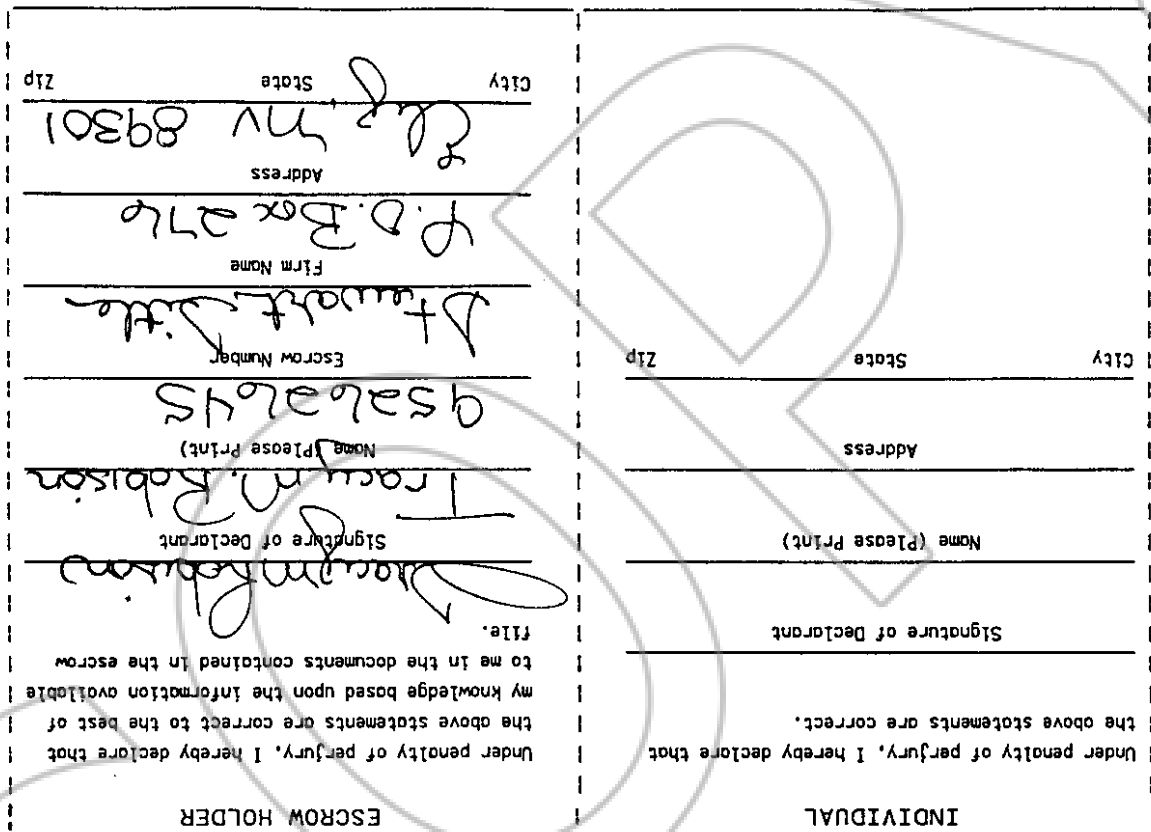 INDIVIDUAL
Under penalty of perjury, I hereby declare that
the above statements are correct.
Signature of Declarant
Name (Please Print)
Address
City State Zip
ESCROW HOLDER
Under penalty of perjury, I hereby declare that
the above statements are correct to the best of
my knowledge based upon the information available
to me in the documents contained in the escrow
file.
Tracy M Robison
Signature of Declarant
Tracy M. Robison
Name (Please Print)
95262645
Escrow Number
Stewart Title
Firm Name
P.O. Box 276
Address
Ely, NV 89301
City State Zip